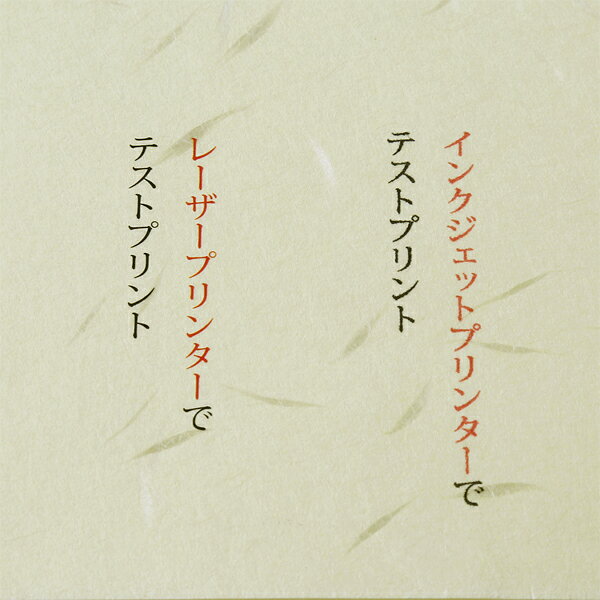 インクジェットプリンターで
テストプリント
レーザープリンターで
テストプリント